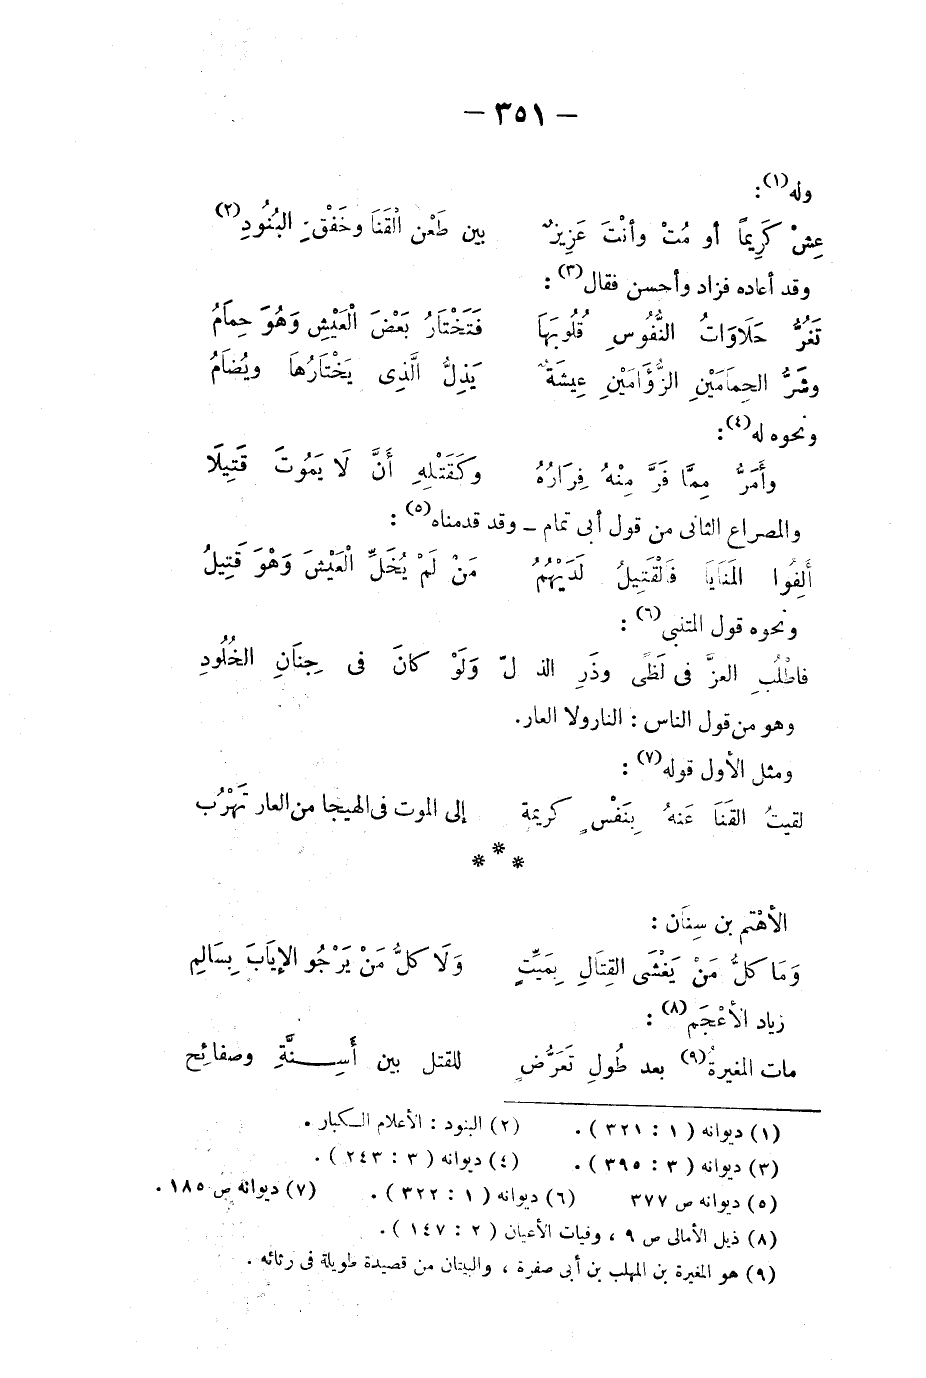 — ٣٥١ —
وله(١) :
عِشْ كَرِيمًا أو مُتْ وأنْتَ عَزِيزٌ بين طَعْنِ الْقَنَا وخَفْقِ البُنُودِ(٢)
وقد أعاده فزاد وأحسن فقال(٣) :
تَغُرُّ حَلَاوَاتُ النُّفُوسِ قُلُوبَهَا فَتَخْتَارُ بَعْضَ الْعَيْشِ وَهُوَ حِمَامُ
وشَرُّ الحِمَامَيْنِ الزُّؤَامَيْنِ عِيشَةٌ يَذِلُّ الَّذِى يَخْتَارُهَا ويُضَامُ
ونحوه له(٤) :
وأَمَرُّ مِمَّا فَرَّ مِنْهُ فِرَارُهُ وكَقَتْلِهِ أَنَّ لَا يَمُوتَ قَتِيلَا
والمصراع الثانى من قول أبى تمام — وقد قدمناه(٥) :
أَلِفُوا المَنَايَا فَالْقَتِيلُ لَدَيْهُمُ مَنْ لَمْ يُخَلِّ الْعَيْشَ وَهْوَ قَتِيلُ
ونحوه قول المتنبى(٦) :
فاطْلُبِ العزَّ فى لَظًى وذَرِ الذ لّ وَلَوْ كانَ فى جِنَانِ الخُلُودِ
وهو من قول الناس : النار ولا العار.
ومثل الأول قوله(٧) :
لقيتُ القَنَا عَنهُ بِنَفْسٍ كريمة إلى الموت فى الهيجا من العار تَهْرُب
* * *
الأهْتم بن سِنَان :
وَمَا كلُّ مَنْ يَغْشَى القِتَالَ بِمَيِّتٍ وَلَا كلُّ مَنْ يَرْجُو الإيَابَ بِسَالِمِ
زياد الأعْجَم(٨) :
مات المغيرةُ(٩) بعد طُولِ تَعَرُّضٍ للقتل بين أَسِـنَّةِ وصفائِح
(١) ديوانه ( ١ : ٣٢١ ) . (٢) البنود : الأعلام الكبار .
(٣) ديوانه ( ٣ : ٣٩٥ ) . (٤) ديوانه ( ٣ : ٢٤٣ ) .
(٥) ديوانه ص ٣٧٧ (٦) ديوانه ( ١ : ٣٢٢ ) . (٧) ديوانه ص ١٨٥ .
(٨) ذيل الأمالى ص ٩ ، وفيات الأعيان ( ٢ : ١٤٧ ) .
(٩) هو المغيرة بن المهلب بن أبى صفرة ، والبيتان من قصيدة طويلة فى رثائه .